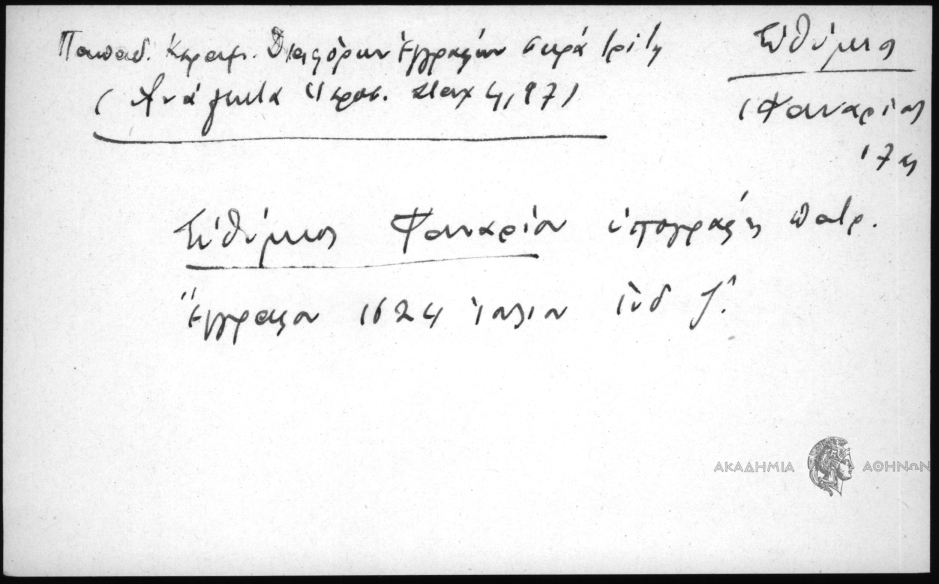 Παπαδ. Κεραμ. Διαφόρων Ἐγγράφων σειρά τρίτη
(Ἀνάλεκτα Ἱεροσ. Σταχ 4, 97)
Εὐθύμιος
(Φαναρίου
17η
Εὐθύμιος Φαναρίου ὑπογραφή πατρ.
Ἔγγραφον 1624 ἰουλίου ἰνδ ζ΄.
ΑΚΑΔΗΜΙΑ ΑΘΗΝΩΝ